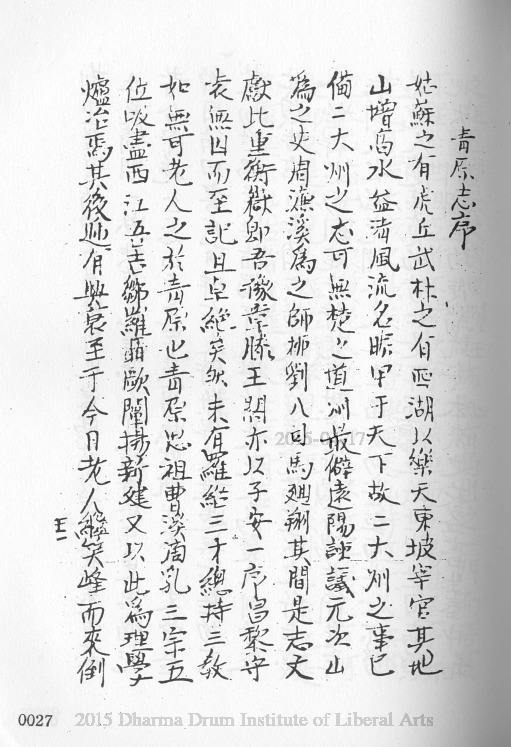 青原志序
姑蘇之有虎丘武林之有西湖以樂天東坡宰官其地
山增高水益清風流名賑甲于天下故二大州之事已
備二大州之志可無楚之道州最僻遠陽諫議元次山
為之吏周濂溪為之師柳劉八司馬翱翔其間是志文
獻比重衡嶽即吾豫章滕王閣亦以子安一序昌黎守
袁無因而至記且卓絕矣然未有羅經三才總持三教
如無可老人之於青原也青原思祖曹溪滴乳三宗五
位吸盡西江五吉鄒羅聶歐闡揚新建又以此為理學
爐冶焉其後迤有興衰至于今日老人繼笑峰而來倒
王一
0027
2015-04-17
2015 Dharma Drum Institute of Liberal Arts